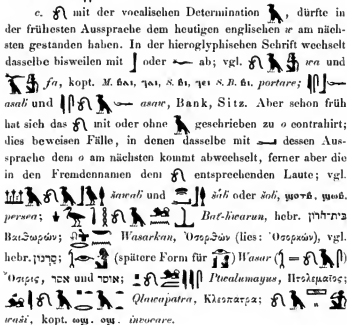 c. 𓍯 mit der vocalischen Determination 𓄿, dürfte in
der frühesten Aussprache dem heutigen englischen w am näch-
sten gestanden haben. In der hieroglyphischen Schrift wechselt
dasselbe bisweilen mit 𓃀 oder 𓆑 ab; vgl. wa und
fa, kopt. M. ϥⲁⲓ, S. B. portare;
asali und asaw, Bank, Sitz. Aber schon früh
hat sich das 𓍯 mit oder ohne 𓄿 geschrieben zu o contrahirt;
dies beweisen Fälle, in denen dasselbe mit 𓆑 dessen Aus-
sprache dem o am nächsten kommt abwechselt, ferner aber die
in den Fremdennamen dem 𓍯 entsprechenden Laute; vgl.
šawab und šab oder šob,
persea; Bat-hwarun, hebr. בית־חורון
Βαιθωρών; Wasarkan, Ὀσορθών (lies: Ὀσορχών), vgl.
hebr. סרגון; (spätere Form für Wasar
Ὄσιρις, אסר und אוסר; Ptwalumayus, Πτολεμαῖος;
Qlawapatra, Κλεοπάτρα;
waši, kopt. ⲱϣ, ⲟϣ, invocare.